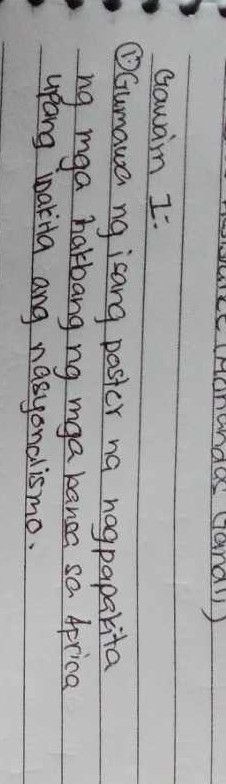 (Mahandas Gandi)
Gawain 1:
① Gumawa ng isang poster na nagpapakita
ng mga hakbang ng mga bansa sa Aprica
upang ipakita ang nasyonalismo.